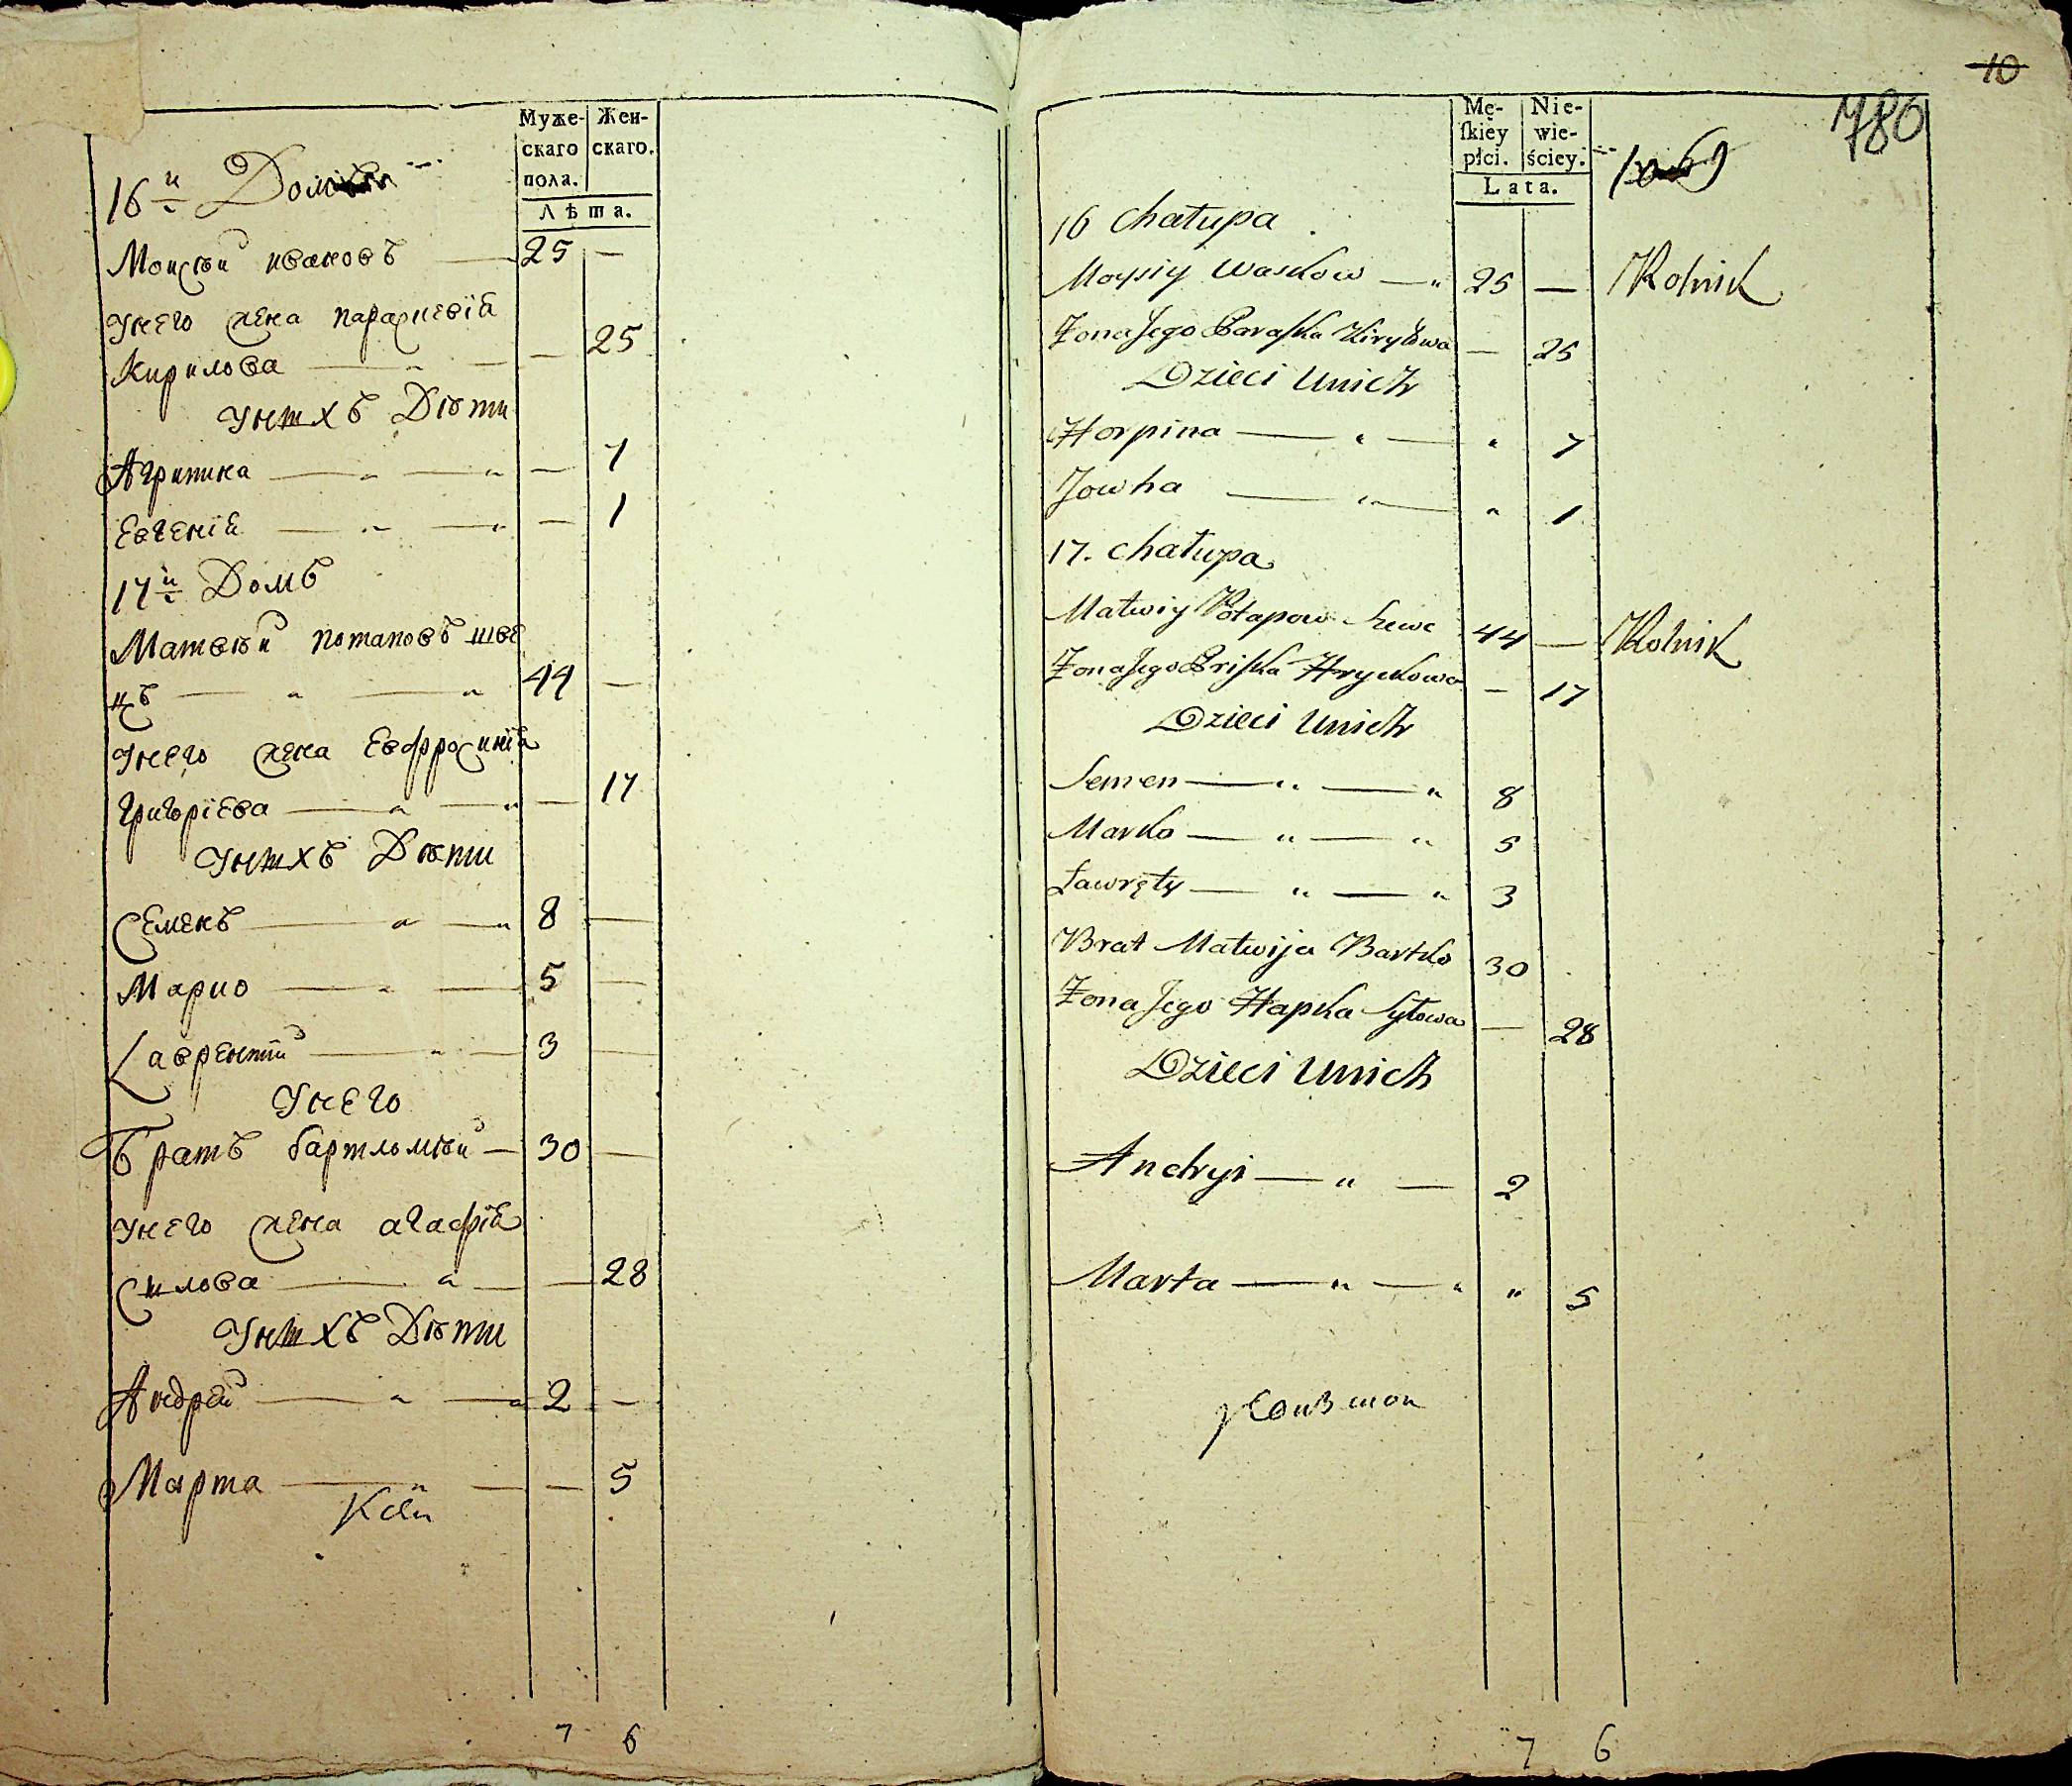 Муже-
скаго
пола.
Жен-
скаго.
Лѣта.
16й Домъ
Моисѣй ивановъ — 25 —
Унего жена параскевія
Кирилова — " — — 25
Унихъ Дѣти
Агрипина — " — " — 7
Евгенія — " — " — 1
17й Домъ
Матвѣй потаповъ шве
цъ — " — " 44 —
Унего жена Евфросинія
Григоріева — " — " — 17
Унихъ Дѣти
Семенъ — " — " 8 —
Марко — " — 5 —
Лаврентій — " — 3 —
Унего
Братъ бартломѣй — 30 —
Унего жена агафія
Силова — " — — 28
Унихъ Дѣти
Андрей — " — " 2 —
Марта — " — — 5
7 6
10
780
Mę-
ſkiey
płci.
Nie-
wie-
ściey.
Lata.
16 Chałupa
Moysiy Waskow — " 25 — Rolnik
Żona Jego Paraſka Kiryłowa — 25
Dzieci Unich
Horpina — " — " 7
Jowha — " — " 1
17. Chałupa
Matwiy Potapow Szewc 44 — Rolnik
Żona Jego Priſka Hryckowa — 17
Dzieci Unich
Semen — " — " 8
Marko — " — " 5
Ławręty — " — " 3
Brat Matwija Bartko 30
Żona Jego Hapka Syłowa — 28
Dzieci Unich
Andryi — " — 2
Marta — " — " " 5
7 6